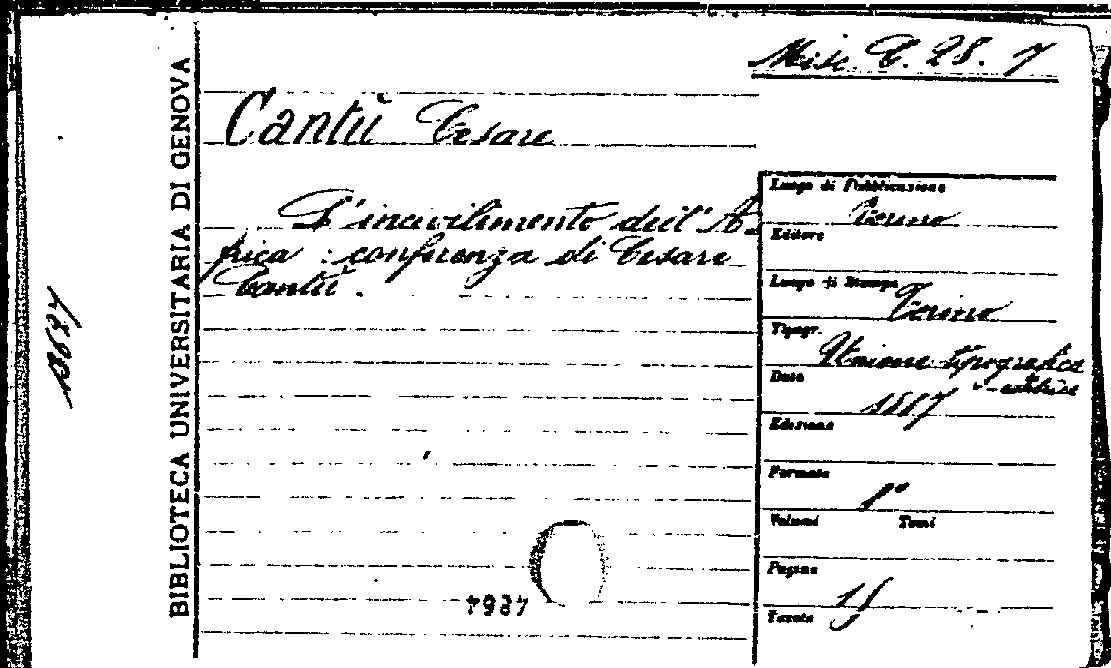 Misc. C. 28. 7
Cantù Cesare
L'incivilimento dell'A-
frica : conferenza di Cesare
Cantù.
BIBLIOTECA UNIVERSITARIA DI GENOVA
Luogo di Pubblicazione
Torino
Editore
Luogo di Stampa
Torino
Tipogr.
Unione tipografica
- editrice
Data
1887
Edizione
Formato
8°
Volumi Tomi
Pagine
Tavole
4864